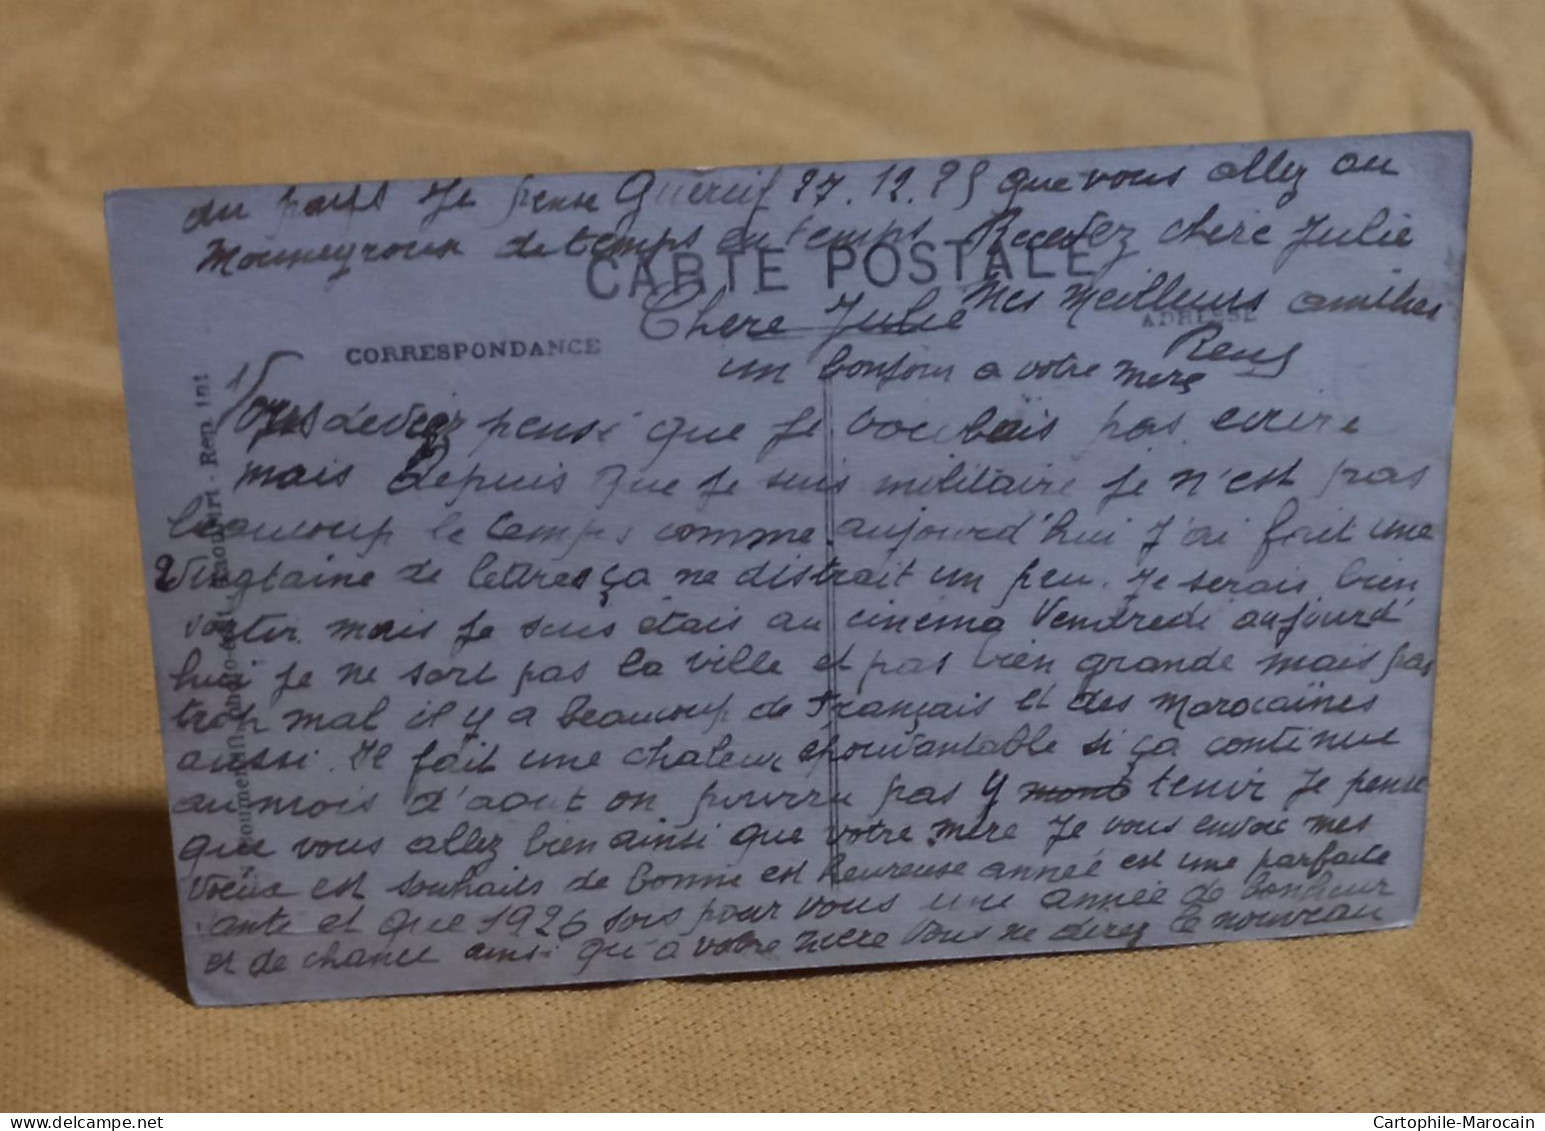 du pays Je pense Guercif 27.12.25 que vous allez au
Mouneyroux de temps en temps Recevez chere Julie
CARTE POSTALE
Chere Julie Mes Meilleurs amitiés
ADRESSE
CORRESPONDANCE
un bonjour a votre mere
Vous devez pensé que je voulais pas ecrire
mais depuis que je suis militaire je n'est pas
beaucoup le temps comme aujourd'hui J'ai fait une
Vingtaine de lettres ça me distrait un peu. Je serais bien
sortir mais je suis étais au cinema Vendredi aujourd'
hui je ne sort pas la ville et pas bien grande mais pas
trop mal il y a beaucoup de Français et des Marocaines
aussi. Il fait une chaleur epouvantable si ça continue
au mois d'aout on pourra pas y tenir Je pense
que vous allez bien ainsi que votre mere Je vous envoie mes
voeux est souhaits de bonne est heureuse année est une parfaite
sante et que 1926 sois pour vous une année de bonheur
et de chance ainsi qu'a votre mere Vous me direz le nouveau
Rep. int
delcampe.net
Cartophile-Marocain